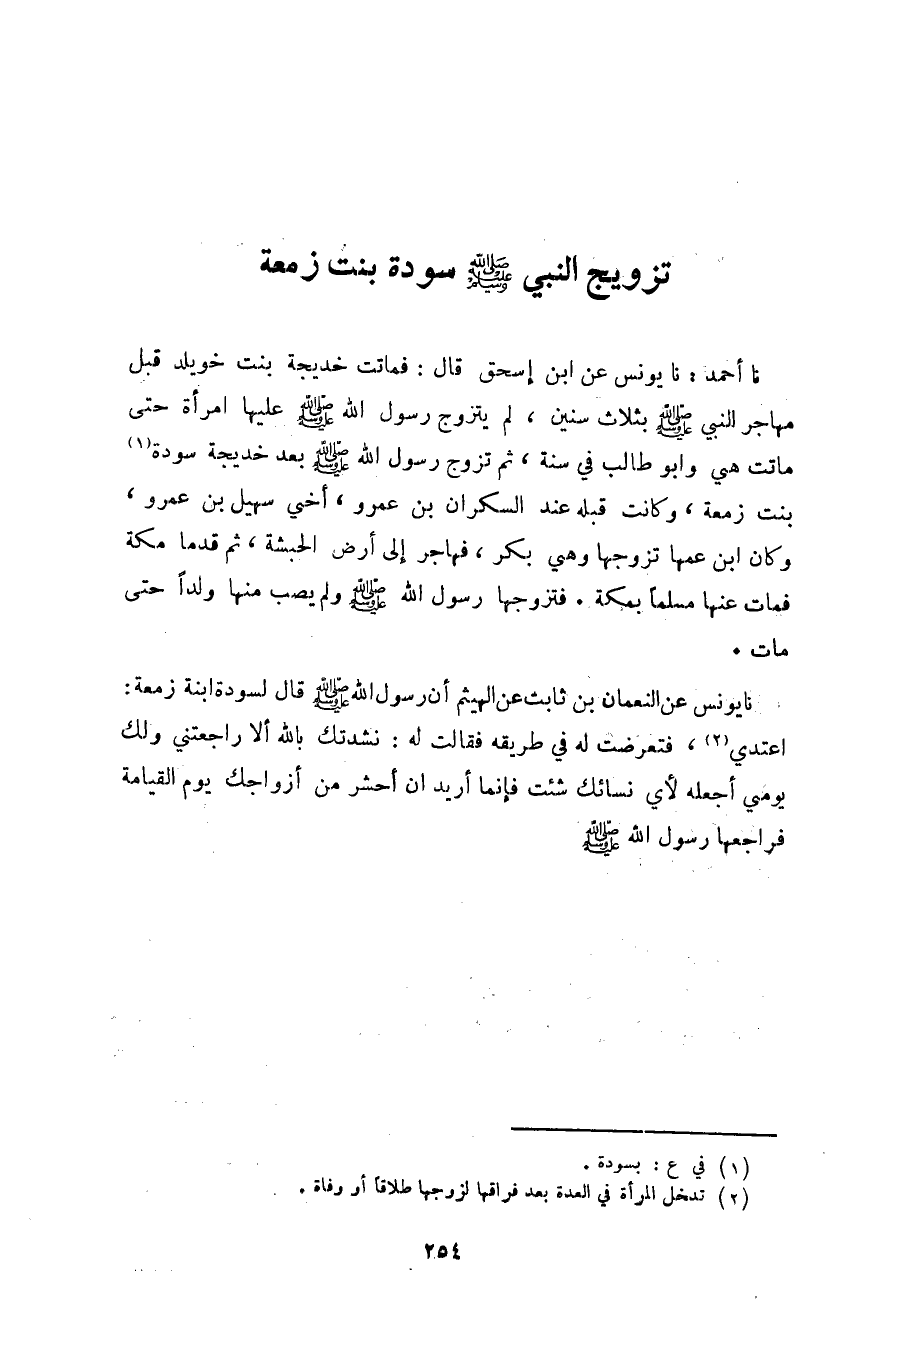 تزويج النبي ﷺ سودة بنت زمعة
نا أحمد : نا يونس عن ابن إسحق قال : فماتت خديجة بنت خويلد قبل
مهاجر النبي ﷺ بثلاث سنين ، لم يتزوج رسول الله ﷺ عليها امرأة حتى
ماتت هي وابو طالب في سنة ، ثم تزوج رسول الله ﷺ بعد خديجة سودة(١)
بنت زمعة ، وكانت قبله عند السكران بن عمرو ، أخي سهيل بن عمرو ،
وكان ابن عمها تزوجها وهي بكر ، فهاجر إلى أرض الحبشة ، ثم قدما مكة
فمات عنها مسلماً بمكة . فتزوجها رسول الله ﷺ ولم يصب منها ولداً حتى
مات .
نا يونس عن النعمان بن ثابت عن الهيثم أن رسول الله ﷺ قال لسودة ابنة زمعة :
اعتدي(٢) ، فتعرضت له في طريقه فقالت له : نشدتك بالله ألا راجعتني ولك
يومي أجعله لأي نسائك شئت فإنما أريد ان أحشر من أزواجك يوم القيامة
فراجعها رسول الله ﷺ
(١) في ع : بسودة .
(٢) تدخل المرأة في العدة بعد فراقها لزوجها طلاقاً أو وفاة .
٢٥٤